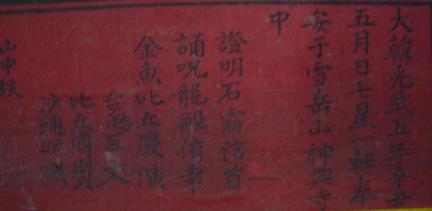 大韓光武五年辛丑
五月日七星幀奉
安于雪岳山神興寺
中
證明石霜信首
誦呪龍船侑幸
金魚比丘慶演
比丘尙賢
山中秩